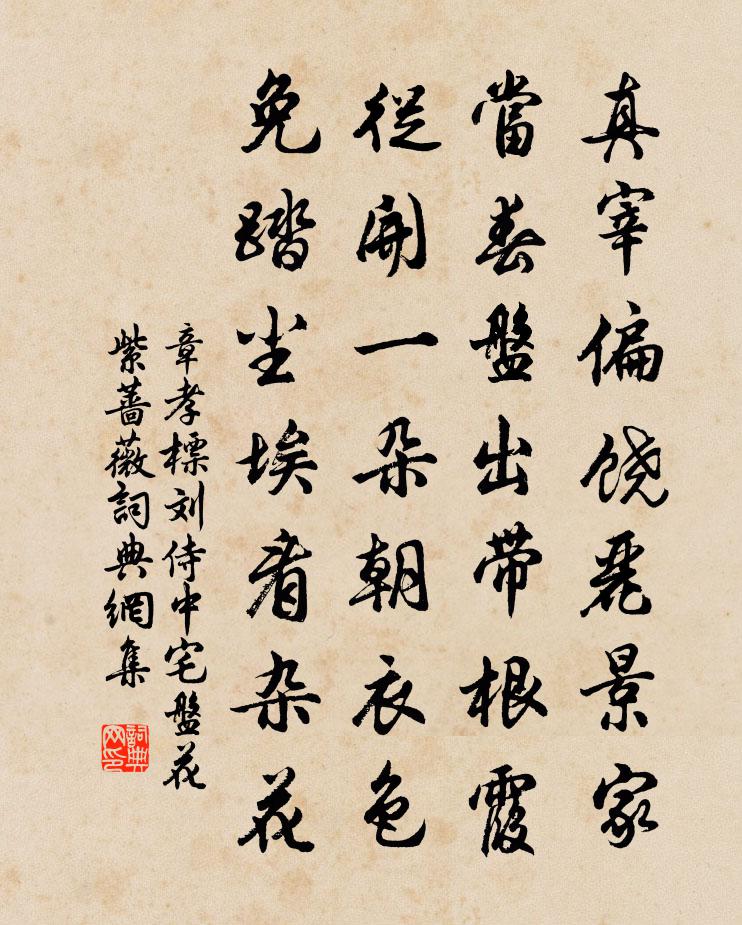 真宰偏饶麗景家
當春盤出带根霞
從開一朵朝衣色
免踏尘埃看杂花
章孝標刘侍中宅盤花
紫蔷薇詞典網集
詞典网印